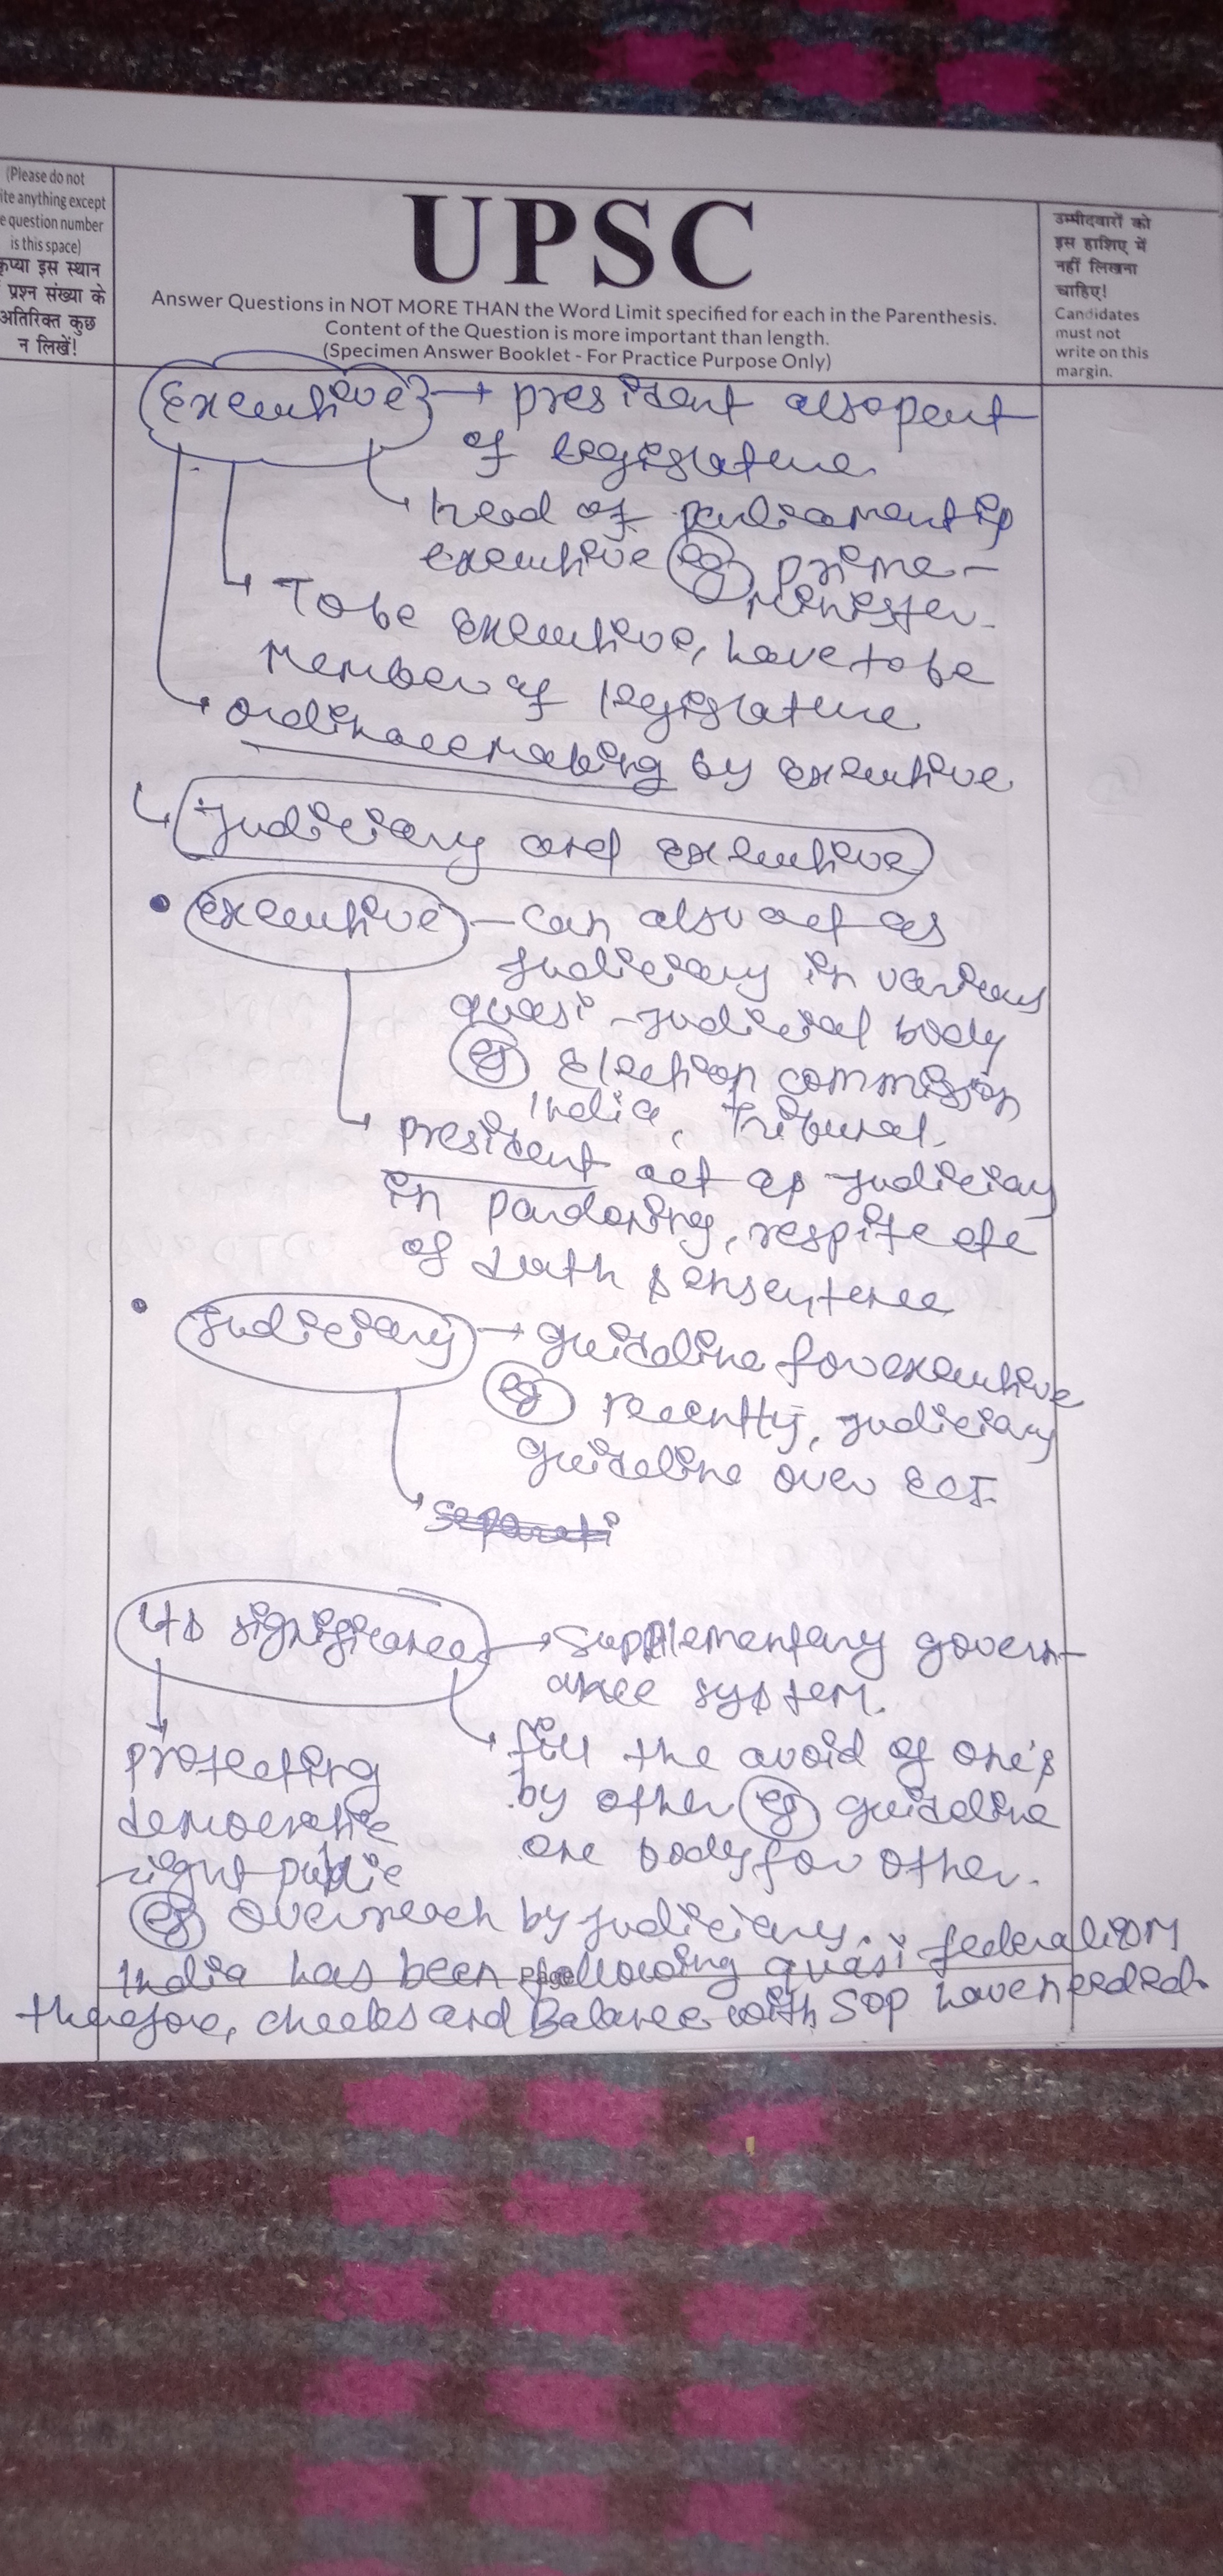 (Please do not
ite anything except
e question number
is this space)
कृप्या इस स्थान
प्रश्न संख्या के
अतिरिक्त कुछ
न लिखें!
UPSC
Answer Questions in NOT MORE THAN the Word Limit specified for each in the Parenthesis.
Content of the Question is more important than length.
(Specimen Answer Booklet - For Practice Purpose Only)
उम्मीदवारों को
इस हाशिए में
नहीं लिखना
चाहिए!
Candidates
must not
write on this
margin.
Executive → president also part
of legislature
head of
executive eg prime-
minister.
To be executive, have to be
member of legislature
ordinance making by executive
Judiciary and executive
• executive - can also act as
Judiciary in various
quasi-judicial body
eg Election commission
India, Tribunal.
president act as judiciary
in pardoning, respite etc
of death
• Judiciary → guideline for executive
eg recently, judiciary
guideline over ECI.
its significance → supplementary govern-
ance system.
fill the avoid of one's
by other eg guideline
one body for other.
protecting
democratic
right public
eg overreach by judiciary.
India has been following quasi federalism
therefore, checks and Balance with SOP have needed.